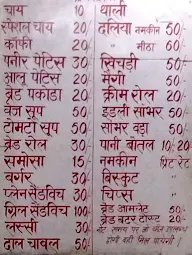 चाय 10
स्पेशल चाय 20
कॉफी 20
पनीर पेटिस 30
आलू पेटिस 20
ब्रेड पकोडा 20
वेज सूप 50/-
टोमेटो सूप 50/-
ब्रेड रोल 30/-
समोसा 15/-
बर्गर 30/-
प्लेन सैंडविच 30/-
ग्रिल सैंडविच 100/-
लस्सी 30/-
दाल चावल 50/-
थाली
दलिया नमकीन 50/-
" मीठा 60/-
खिचड़ी 50/-
मैगी 50/-
क्रीम रोल 20/-
इडली सांभर 50/-
सांभर वड़ा 50/-
पानी बोतल 10/20
नमकीन प्रिंट रेट
बिस्कुट "
चिप्स "
ब्रेड आमलेट 50/-
ब्रेड बटर टोस्ट 20/-
नोट समय पर जो चीज उपलब्ध
होगी वही मिल पायेगी